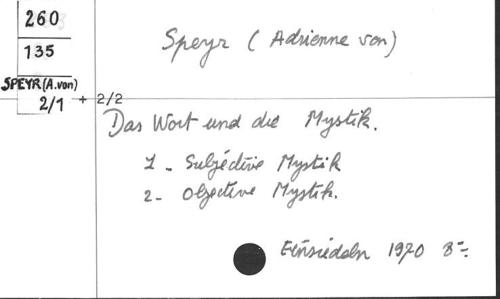 260
135
SPEYR (A.von)
2/1 + 2/2
Speyr (Adrienne von)
Das Wort und die Mystik.
1 - Subjective Mystik
2 - Objective Mystik.
Einsiedeln 1970 8°-